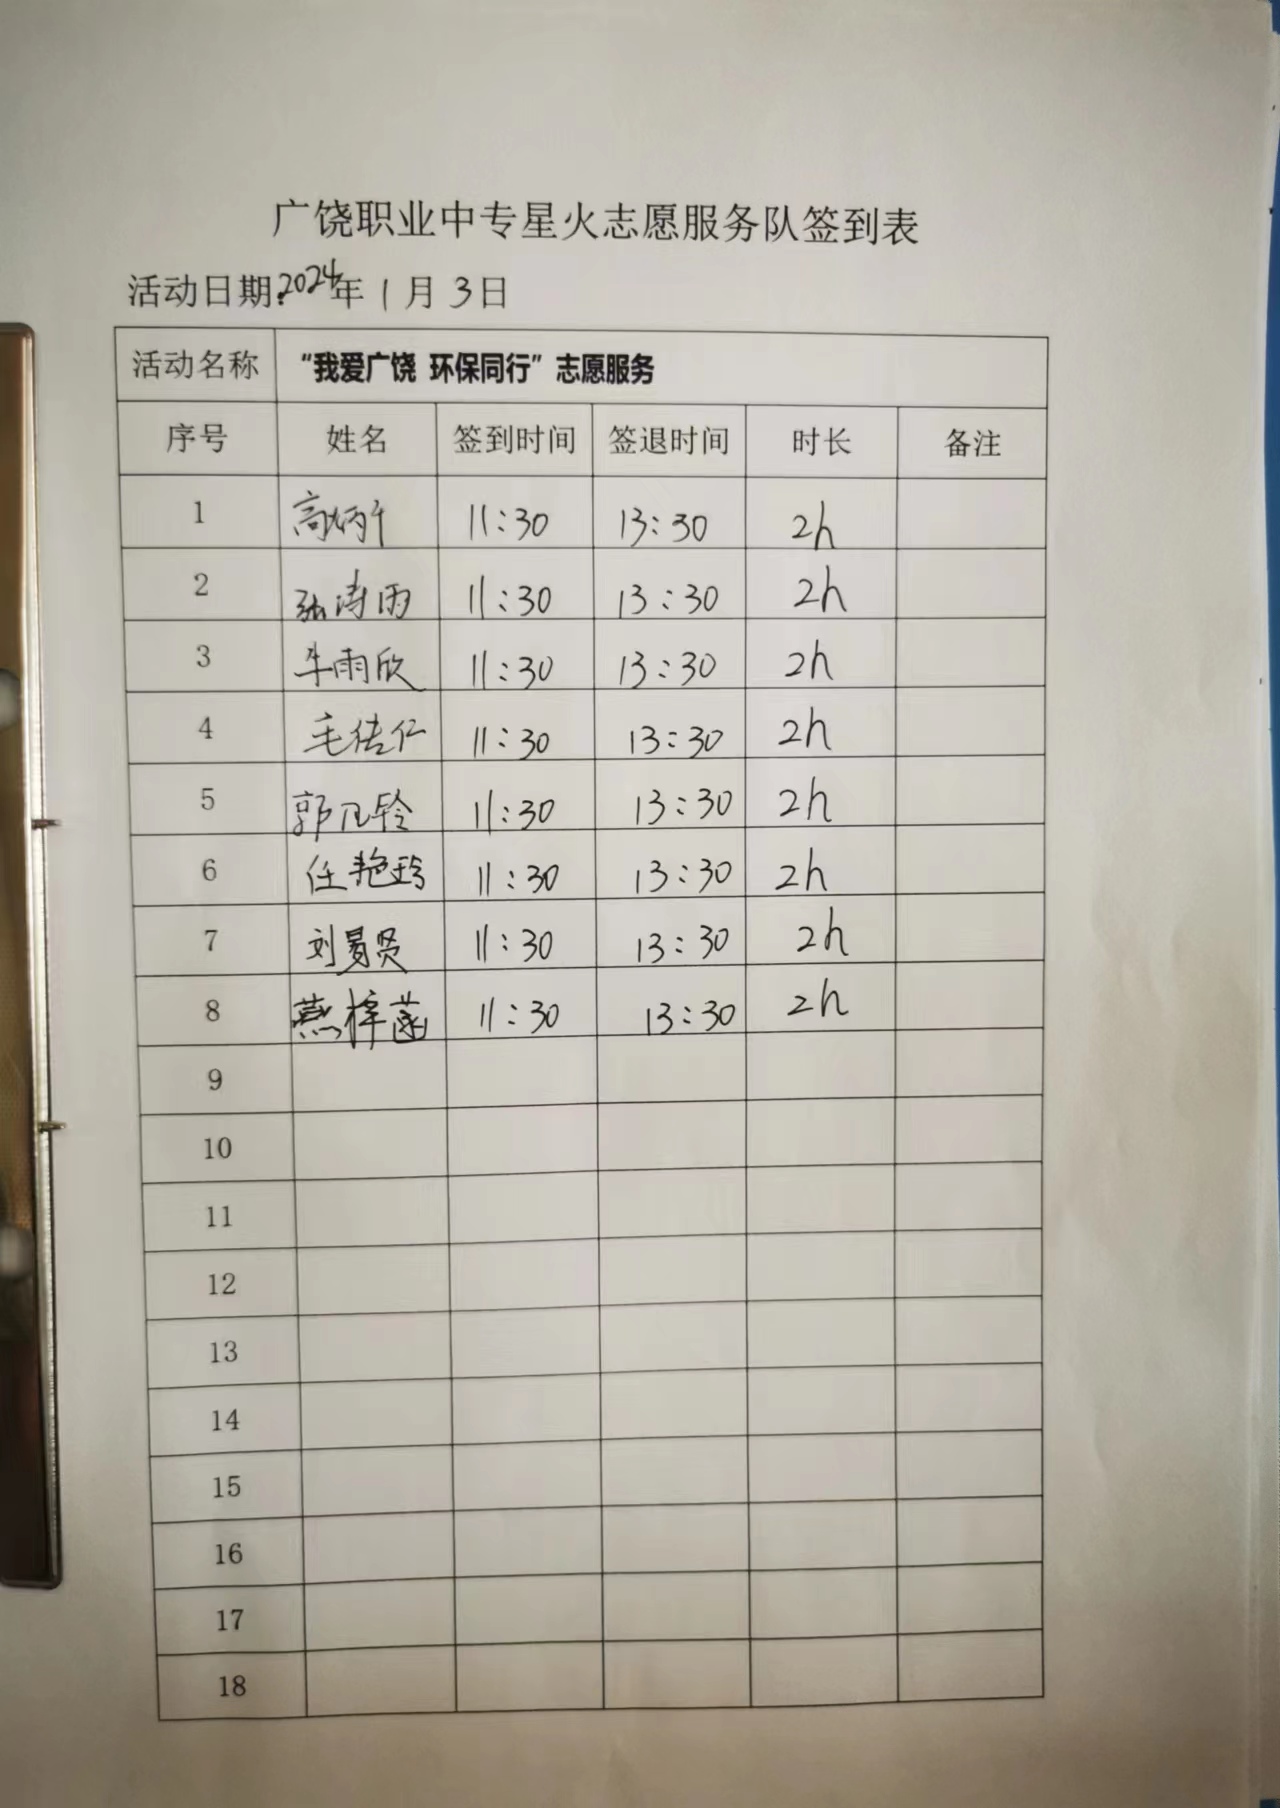 广饶职业中专星火志愿服务队签到表
活动日期:2024年 1 月 3 日
活动名称 “我爱广饶 环保同行”志愿服务
序号 姓名 签到时间 签退时间 时长 备注
1 高炳 11:30 13:30 2h
2 张涛雨 11:30 13:30 2h
3 牛雨欣 11:30 13:30 2h
4 毛佳仁 11:30 13:30 2h
5 郭凡铃 11:30 13:30 2h
6 任艳玲 11:30 13:30 2h
7 刘易贤 11:30 13:30 2h
8 燕梓菡 11:30 13:30 2h
9
10
11
12
13
14
15
16
17
18